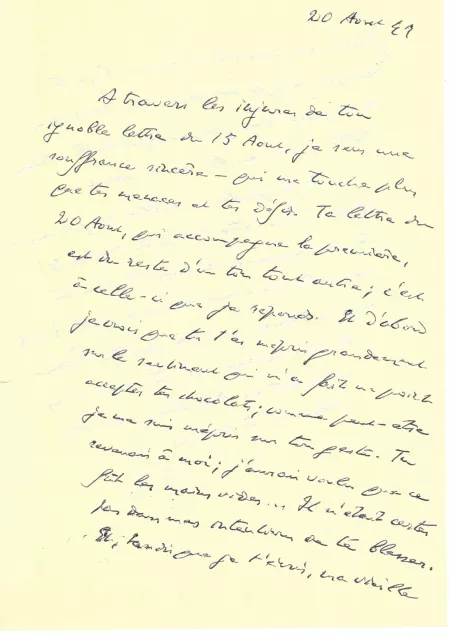 20 Aout 41
A travers les injures de ton
ignoble lettre du 15 Aout, je sens une
souffrance sincère – qui me touche plus
que tes menaces et tes défis. Ta lettre du
20 Aout, qui accompagne la première,
est du reste d'un ton tout autre ; c'est
à celle-ci que je réponds. Et d'abord
je crois que tu t'es mépris grandement
sur le sentiment qui m'a fait ne point
accepter tes chocolats ; comme peut-être
je me suis mépris sur ton geste. Tu
revenais à moi ; j'aurais voulu que ce
fût les mains vides... Il n'était certes
pas dans mes intentions de te blesser.
Et, tandis que je t'écris, ma vieille